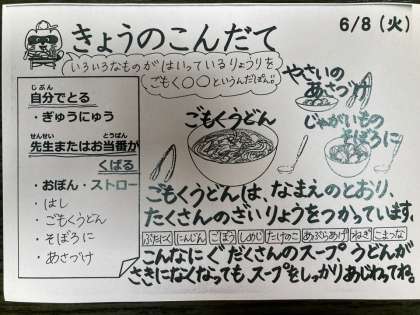 きょうのこんだて
6/8(火)
いろいろなものがはいっているりょうりを
ごもく〇〇というんだぽん♡
自分でとる
じぶん
・ぎゅうにゅう
せんせい とうばん
先生またはお当番が
くばる
・おぼん・ストロー
・はし
・ごもくうどん
・そぼろに
・あさづけ
ごもくうどん
やさいの
あさづけ
じゃがいもの
そぼろに
ごもくうどんは、なまえのとおり、
たくさんのざいりょうをつかっています。
ぶたにく にんじん ごぼう しめじ たけのこ あぶらあげ ねぎ こまつな
こんなにぐだくさんのスープ、うどんが
さきになくなっても、スープをしっかりあじわってね。